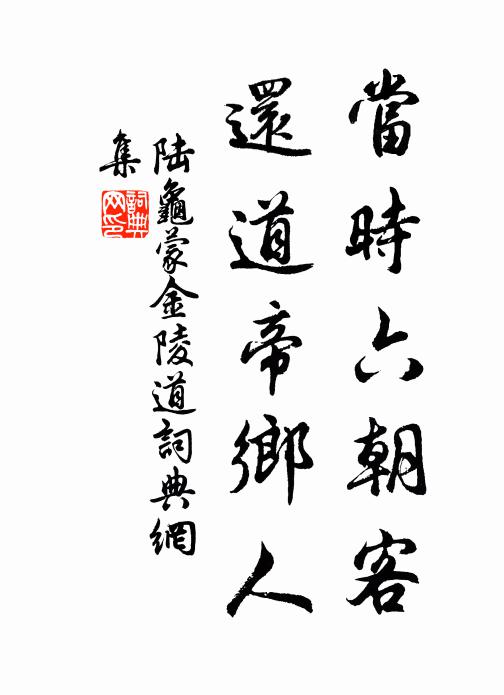 當時六朝客
還道帝鄉人
陸龜蒙金陵道詞典網
集
詞典
网印